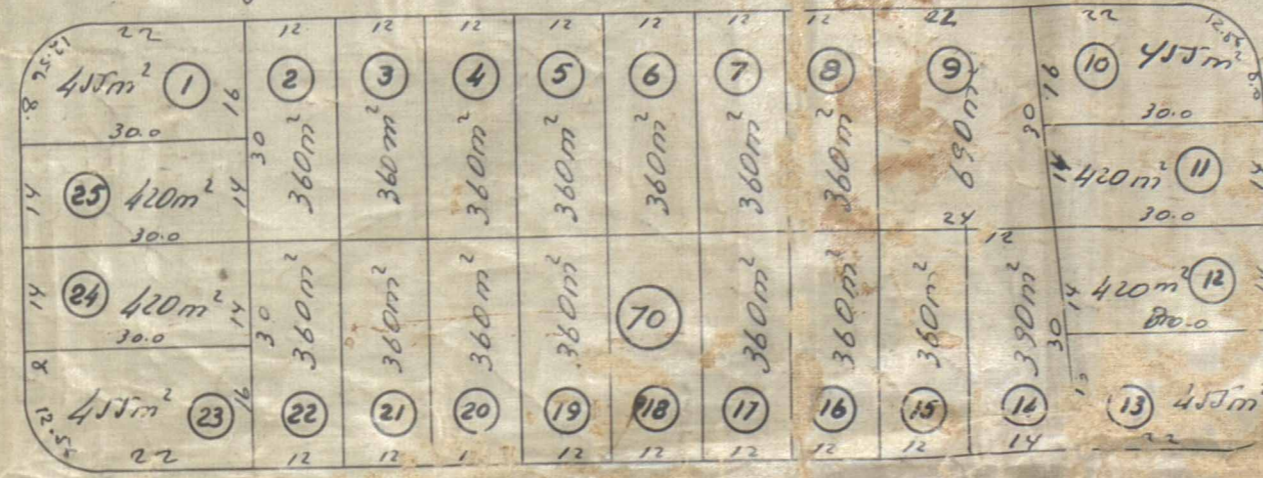 22 12 12 12 12 12 12 12 22 22
455m² 1 16
2 3 4 5 6 7 8 9
16 10 455m²
8
30.0 30 360m² 360m² 360m² 360m² 360m² 360m² 360m² 690m² 30 30.0
14 25 420m² 14
14 420m² 11 14
30.0 24 30.0
12
14 24 420m² 14
14 420m² 12
30.0 30 360m² 360m² 360m² 360m² 70 360m² 360m² 360m² 390m² 30
455m² 23 16
22 21 20 19 18 17 16 15 14
13 455m²
22 12 12 12 12 12 12 12 14 22